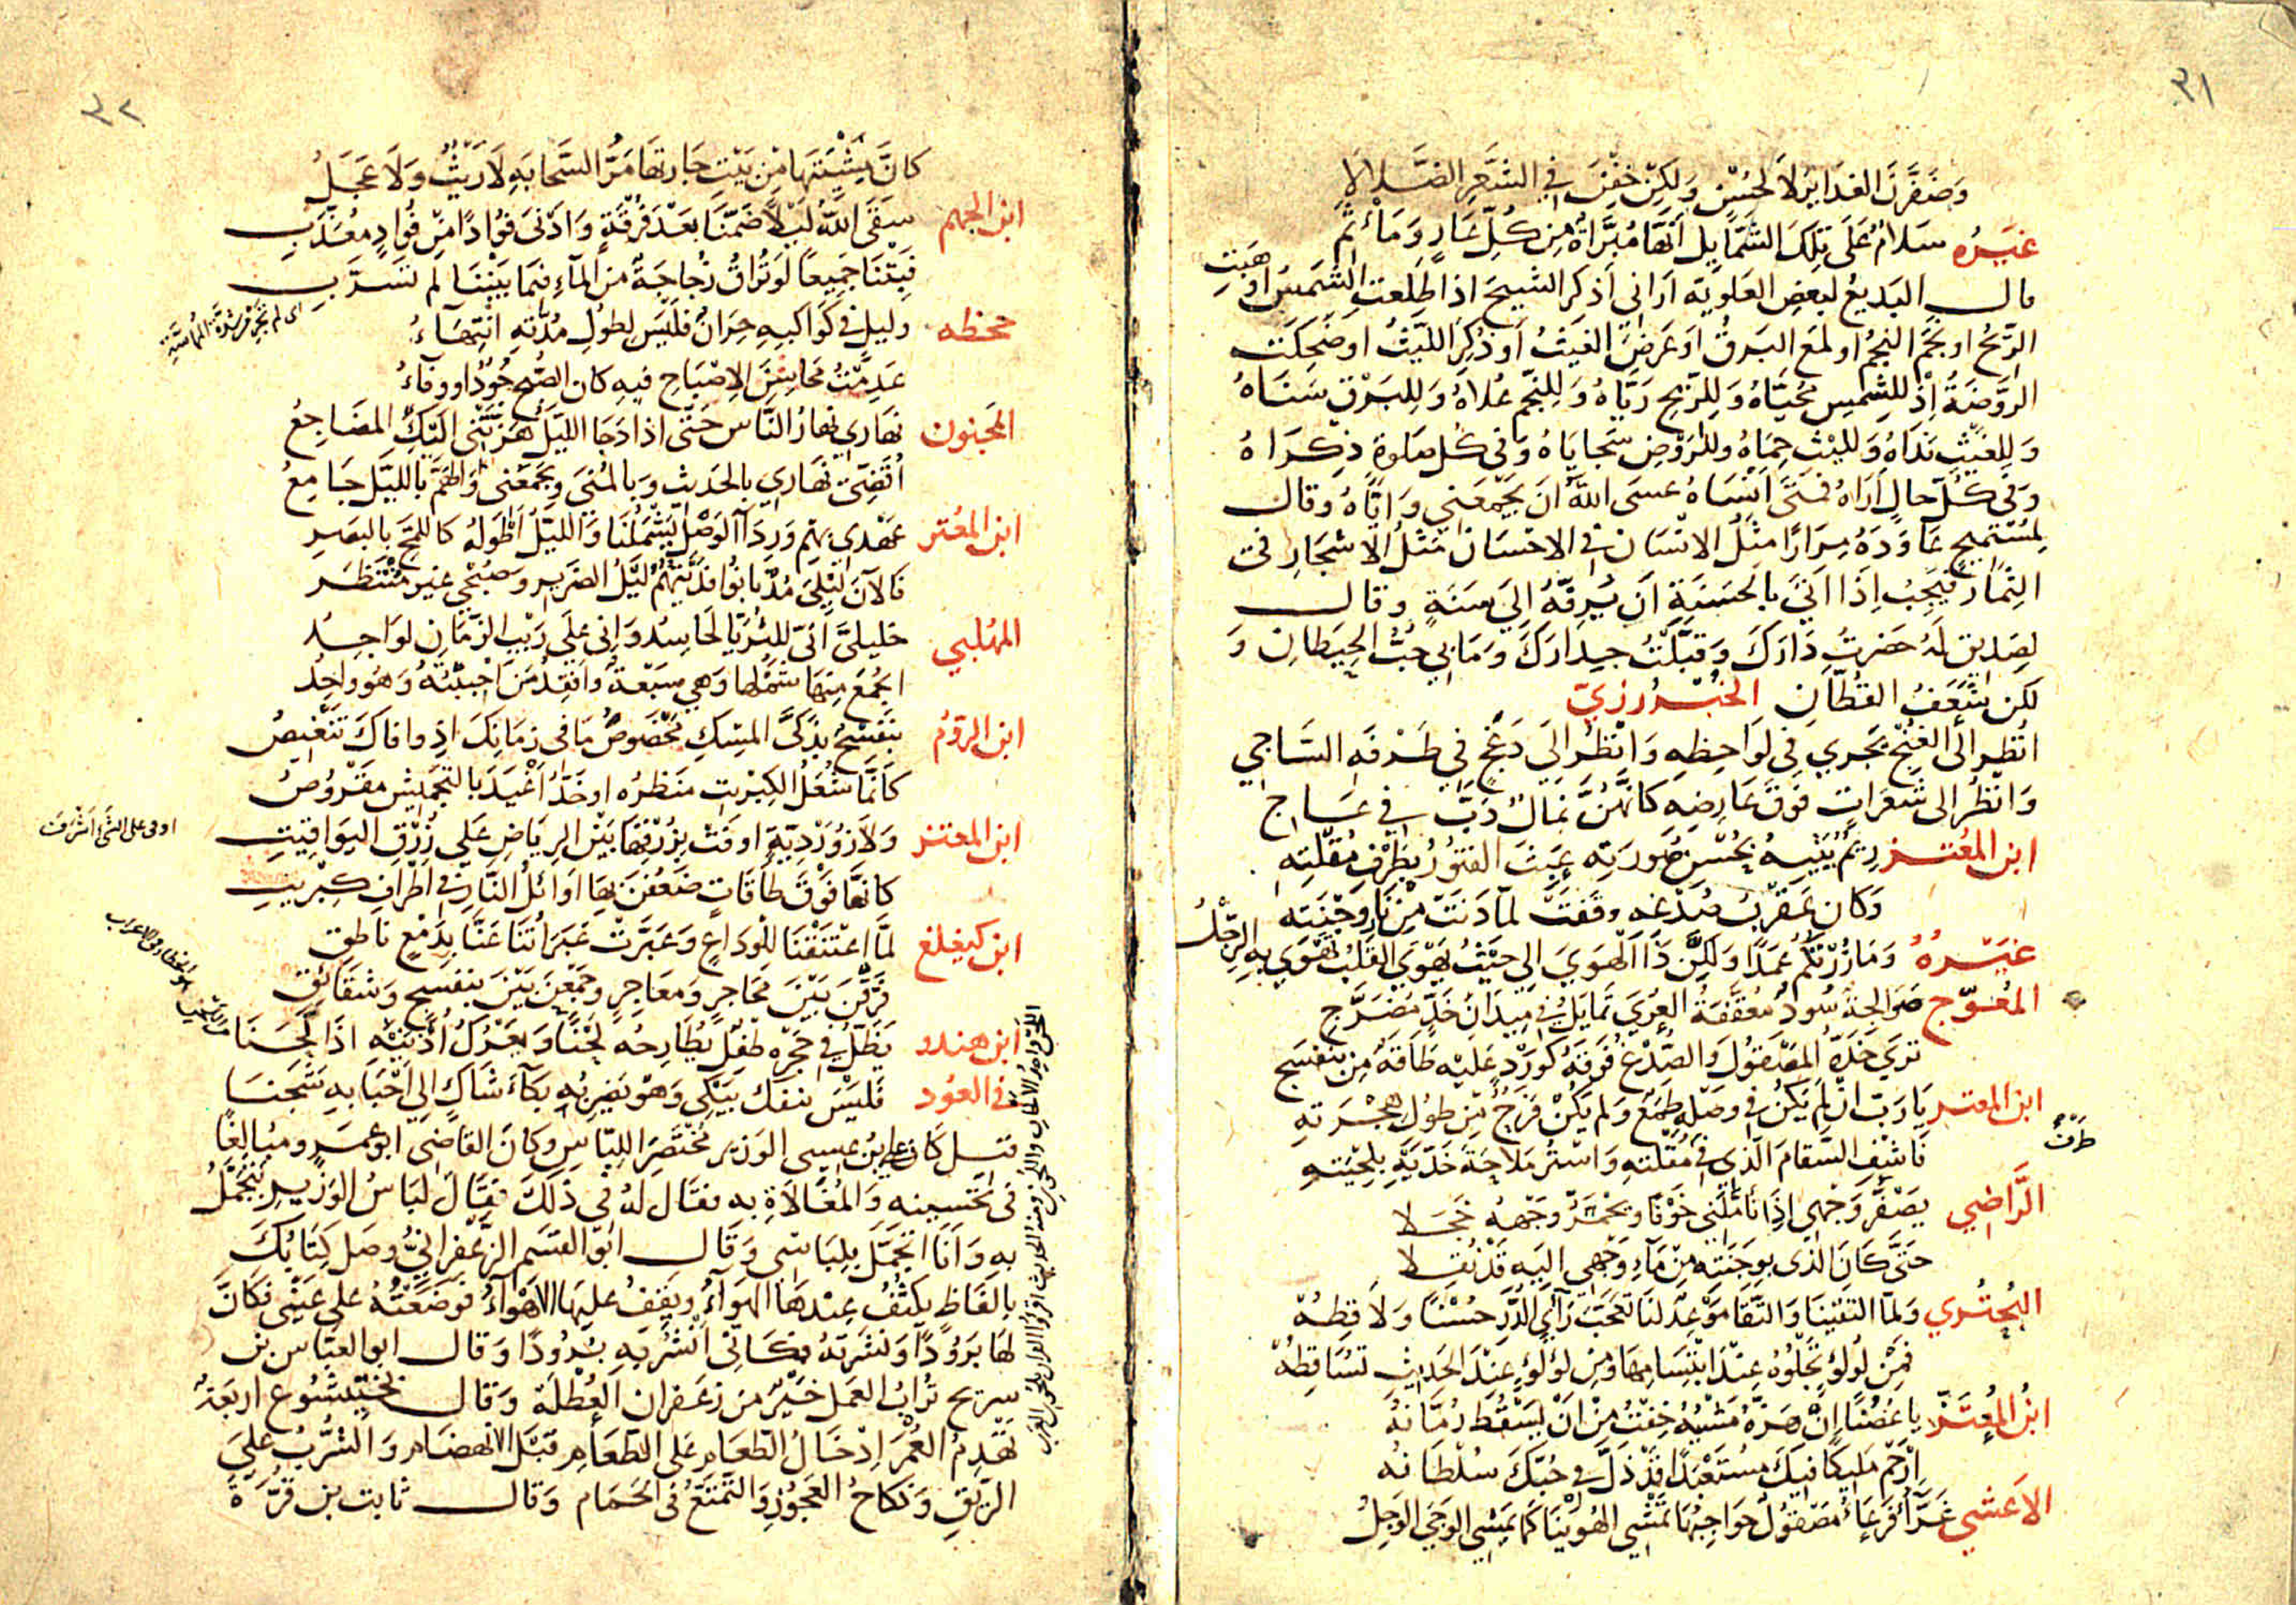 ٣١
وَضَفَّرْنَ الغَدَائِرَ لَا لِحُسْنٍ وَلَكِنْ خِفْنَ فِي الشَّعَرِ الضَّلَالَا
غَيْرُه سَلَامٌ عَلَى تِلْكَ الشَّمَايِلِ اَنَّهَا مُبَرَّاةٌ مِنْ كُلِّ عَارٍ وَمَاْثَمِ
قال البَدِيعُ لبَعضِ العَلَوِيَّة اَرَانِي اَذكر الشيخَ اذا طلعت الشَّمسُ اَو هَبّتِ
الرّيحُ او نجَمَ النجمُ او لمَعَ البَرقُ اَو عَرضَ الغيثُ اَو ذُكِرَ اللَّيثُ او ضَحِكَت
الرَّوضَةُ اِذْ للشمسِ مُحَيَّاهُ وَلِلرِّيحِ رَيَّاهُ وَلِلنجمِ عُلَاهُ وَلِلبَرْقِ سَنَاهُ
وَلِلغَيْثِ نَدَاهُ وَلليْثِ حِمَاهُ وللرَوْضِ سَجَايَاهُ وَفى كُل صَلوة ذِكرَاهُ
وَفى كُلّ حالٍ اَرَاهُ فمَتَى اَنْسَاهُ عسَى اللهُ اَنْ يَجمَعَنِي وَاِيَّاهُ وقال
لِمُسْتَمِيحٍ عَاوَدَهُ مِرَارًا مَثَلُ الانْسَان فى الاحْسَان مَثَلُ الاشجَارِ فى
الثِّمَار فيَجِبُ اِذَا اَتَى بِالحَسَنَةِ اَن يُرفّهَ اِلَى سَنَةٍ وقال
لِصَدِيق لَهُ حَضرتُ دَارَكَ وَقَبَّلْتُ جِدَارَكَ وَمَا بِي حُبُّ الحِيطَانِ وَ
لكن شَعَفُ القُطَّانِ الخُبْزرُزيّ
انظر الى الغُنْج يَجري فِي لَوَاحِظِهِ وَانْظُر الَى دَعَجٍ في طَرْفهِ السَّاجي
وَانْظُر الى شَعَرَاتٍ فَوقَ عَارِضِه كَاَنَّهُنَّ نِمَالٌ دَبَّ في عَاجِ
ابن المعتز رِيْمٌ يَتِيهُ بِحُسْنِ صُورَتِه عَبَثَ الفُتُورُ بِطَرْفِ مُقْلَتِه
وَكان عَقْرَبَ صُدْغه وقفت لمّا دَنَتْ مِن نَار وَجْنَتِه
غَيْرُهُ وَمَا زُرْتُكُمْ عَمْدًا وَلَكِنَّ ذَا الهَوَى الى حَيْثُ يَهْوَى القَلْبُ تَهْوي به الرِّجْلُ
المُعْوَجّ صَوَالِجَةٌ سُودٌ مُعَقْفَفَةُ العُرَى تَمَايَلُ فى مِيدَانِ خَدٍّ مُضَرَّجِ
تَرَى خَدَّهُ المَصْقُولَ وَالصُّدْغُ فَوقَهُ كَوَرْدٍ عَلَيْه طَاقَةٌ مِن بَنَفْسَجِ
ابن المعتز يَا رَبِّ ان لَم يَكُن فى وَصْلِهِ طَمَعٌ وَلَم يَكُنْ فَرَجٌ مِنْ طُولِ هَجْرَتهِ
فَاشْفِ السَّقَامَ الّذِى فى مُقْلَتهِ وَاسْتُر مَلَاحَة خَدَّيْه بِلِحْيَتهِ
الرَّاضِي يَصْفَرُّ وَجْهِي اِذَا تَاَمَّلَنِي خَوْفًا وَيَحْمَرُّ وَجْههُ خَجَلا
حَتَّى كَاَنَ الَّذى بِوَجْنَتِه مِنْ مَآءِ وَجْهي اليه قَدْ نُقِلا
البُحتُري وَلمّا التَقَيْنَا وَالنَّقَا مَوْعِدٌ لنَا تَعَجَّبَ رَائِي الدُّرّ حُسْنًا وَلَاقِطُهْ
فَمِنْ لُؤلُؤٍ تَجْلُوهُ عِنْدَ ابْتِسَامِهَا وَمِن لؤلُؤٍ عِنْدَ الحَدِيثِ تُسَاقِطُهْ
ابْنُ المُعْتَزّ يَا غُصْنًا اِنْ هَزَّهُ مَشْيُهُ خِفْتُ مِنْ اَنْ يَسْقُط رُمَّانهُ
اِرْحَم مَلِيكًا فيكَ مُسْتَعْبَدًا قَدْ ذَلَّ فى حُبِّكَ سُلْطَانُه
الاَعشى غَرَّآءُ فَرعَآءُ مَصْقُولٌ عَوَارِضُهَا تَمْشِي الهُوَيْنَا كَمَا يَمشِي الوَجِي الوَجِلُ
٣٢
كَاَنَّ مِشْيَتَهَا مِنْ بَيْتِ جَارتِهَا مَرُّ السَّحَابَةِ لَا رَيْثٌ وَلَا عَجَلُ
ابن الجهم سَقَى اللهُ لَيْلًا ضَمَّنَا بَعْدَ فُرْقَةٍ وَاَدْنَى فُؤادًا مِن فُؤادٍ مُعَذَّبِ
فَبِتْنَا جَمِيعًا لَو تُرَاقُ زُجَاجَةٌ مِنَ المآءِ فيما بَيْنَنَا لم تَسَرَّبِ
جحظه وليل في كَواكبِهِ حِرَانٌ فليسَ لِطُولِ مُدَّتِهِ انتِهَآءُ
عَدِمْتُ مَحَاسِنَ الاِصْبَاحِ فيهِ كان الصُّبح جُودٌ اَو وفَآءُ
المجنون نَهَارِي نَهَارُ النَّاس حَتّى اذا دَجَا الليْلُ هَزّتْنِي اليْكِ المَضَاجِعُ
اُقَضِّى نَهَارِي بِالحَدِيثِ وَبِالمُنَى وَيَجْمَعُنِي وَالهَمَّ بِاللَّيْل جَامِعُ
ابن المعتز عَهْدِى بِهِم وَرِدَآءُ الوَصْلِ يَشْمَلُنَا وَاللَّيْلُ اَطْوَلهُ كَاللَّمْحِ بِالبَصَرِ
فَالآنَ لَيْلِيَ مُذْ بَانُوا فَدَيْتُهُمُ لَيْلُ الضَّرِير وصُبْحِي غير مُنْتَظَر
المهلبي خليليَّ اَنِّى لِلثُرَيَّا لَحاسِدٌ وَاِنى عَلَى رَيْبِ الزَّمَانِ لوَاجِدُ
اَيُجْمَعُ مِنهَا شَمْلُها وَهي سَبْعَةٌ وَاَفْقِدُ مَنْ اَحْبَبْتُهُ وَهُو وَاحِدُ
ابن الرومي بَنَفْسَجٌ بِذَكِىِّ المِسْكِ مَخْصُوصُ مَا في زمَانِكَ اِذ وافاكَ تَنْغِيصُ
كَاَنَّمَا شُعَلُ الكِبْرِيت مَنظَرُه او خَدُّ اَغْيَدَ بالتجميش مَقْرُوصُ
اوفى على الشئ اَشْرَفَ
ابن المعتز وَلَازوَرْدِيَّةٍ اَوفَتْ بِزُرْقَتِهَا بَيْنَ الرِيَاضِ عَلَى زُرْقِ اليَوَاقِيتِ
كَاَنَّهَا فَوْقَ طَاقَاتٍ ضَعُفْنَ بِهَا اَوَائِلُ النَّارِ في اَطْرَافِ كِبْرِيتِ
ابن كيغلغ لمَّا اعْتَنَقْنَا لِلْوَدَاعِ وَعَبَّرَتْ عَبَرَاتُنَا عَنَّا بِدَمْعٍ نَاطِقِ
فَرَّقْنَ بَيْنَ مَحَاجِرٍ وَمَعَاجِرٍ وجَمَعْنَ بَيْنَ بَنَفْسَجٍ وَشَقَائِقِ
ابن هندو يَظَلُّ فِي حَجْرِهِ طِفلٌ يُطَارِحُه لَحْنًا وَيَعْرُكُ اُذْنَيْهِ اِذَا لَحَنَا
في العُود فَلَيْسَ ينفَكُّ يَبْكِي وَهْوَ يَضْرِبُهِ بُكَآءَ شَاكٍ اِلَى اَحْبَابِهِ شَجَنَا
قيل كَانَ علي بن عيسى الوَزير مُخْتَصَرَ اللِبَاسِ وكَانَ القَاضي ابو عمَر ومبَالِغًا
فى تَحْسِينِهِ وَالمُغَالَاةِ به فقَال لَهُ فى ذلكَ فقَالَ لِبَاسُ الوَزِيرِ يَتَجَمَّلُ
به وَاَنَا اَتَجَمَّلُ بِلِبَاسِى وَقال ابو القسَم الزعْفرانِيُّ وصَل كِتَابُكَ
بِالفَاظٍ يَكثُفُ عِنْدَهَا الهوَآءُ ويَقِفُ عليهَا الاهْوَآءُ فوَضَعْتُهُ عَلى عَيْنِي فكَانَ
لهَا بَرُودًا وَنَشَرتهُ فكَاَنِّى اَنْشُرُ بِهِ بُرودًا وَقال ابو العبّاس بن
سريج تُرابُ العَمَل خَيْرٌ مِن زعفران العُطْلَةِ وَقال بختيشوع اربَعَةٌ
تَهْدِمُ العُمْرَ اِدْخَالُ الطَّعَامِ عَلى الطعَامِ قبْلَ الانهضَام وَالشُّرْبُ عَلى
الرِيقِ وَنكَاحُ العَجُوزِ وَالتمتّعُ فى الحَمَام وَقال ثابت بن قرّة